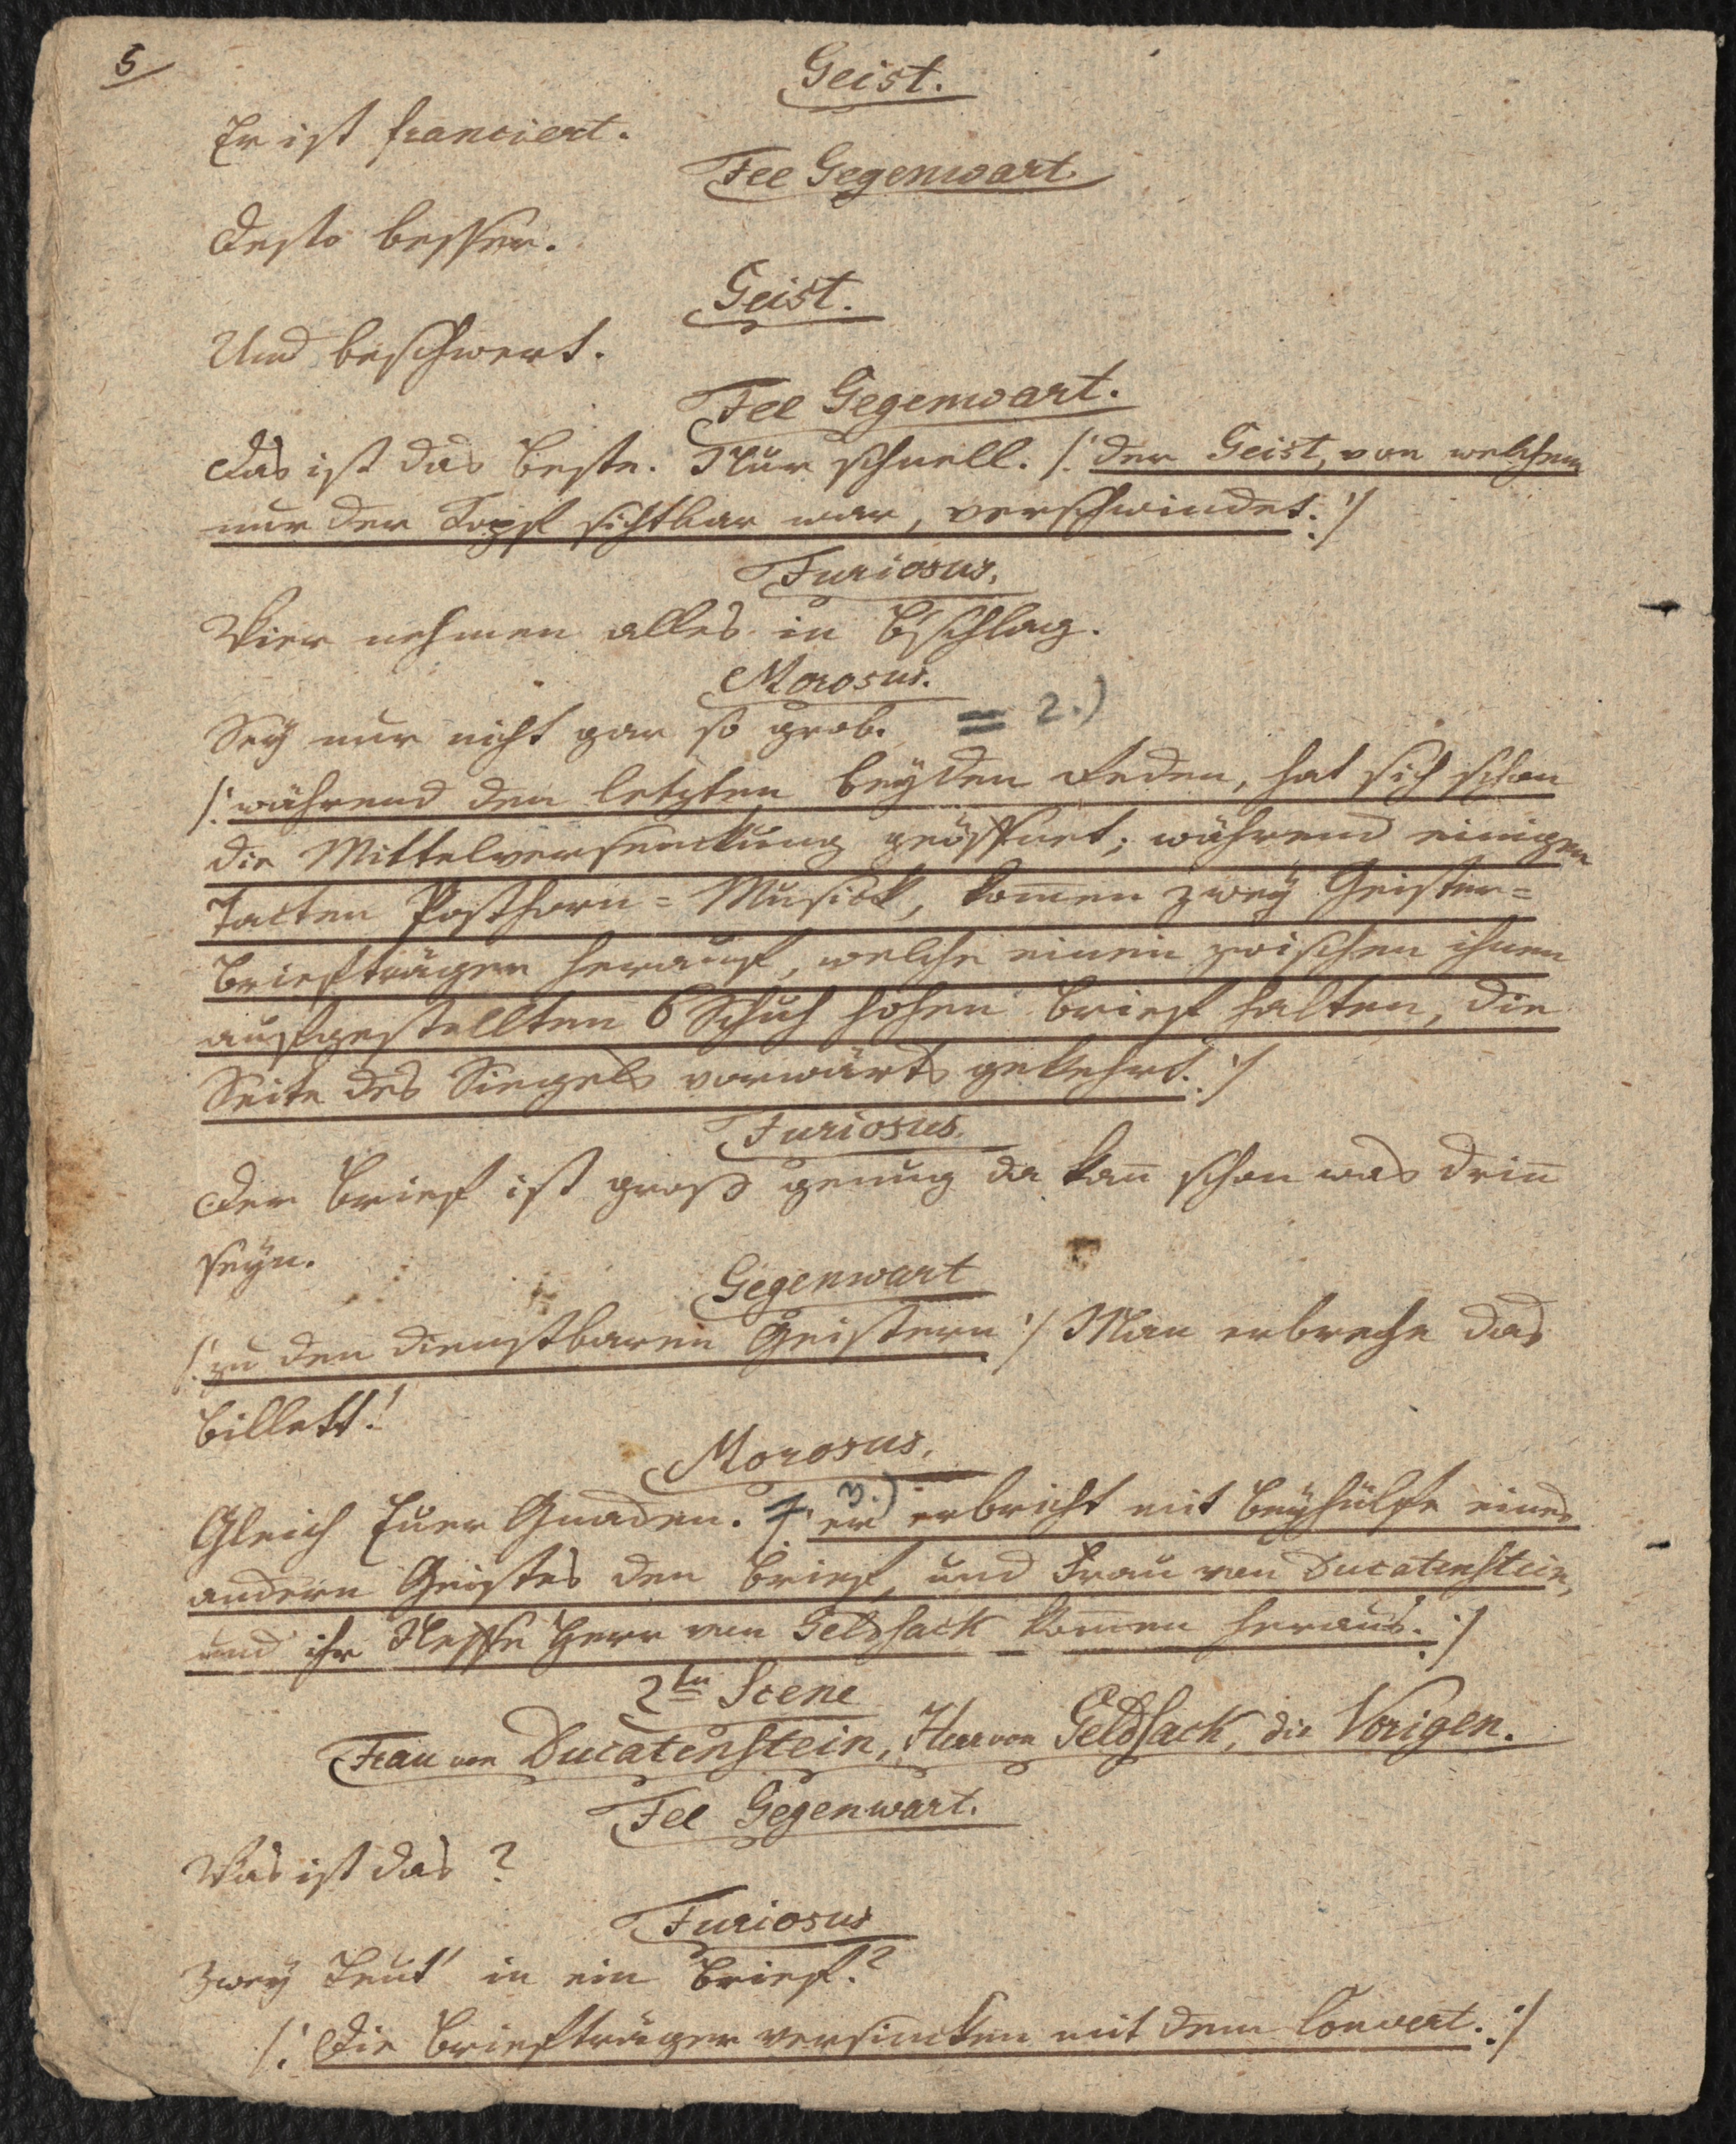 5
Geist.
Er ist francirt.
Fee Gegenwart.
Desto besser.
Geist.
Und beschwert.
Fee Gegenwart.
Das ist das Beste. Nur schnell. /: der Geist, von welchem
nur der Kopf sichtbar war, verschwindet. :/
Furiosus.
Wier nehmen alles in B'schlag.
Morosus.
Sey nur nicht gar so grob. = 2.)
/: während den letzten beyden Reden, hat sich schon
die Mittelversenckung geöffnet; während einigen
Tacten Posthorn-Musick, kom̅en zwey Geister-
briefträger herauf, welche einen zwischen ihnen
aufgestellten 6 Schuh hohen Brief halten, die
Seite des Siegels vorwärts gekehrt. :/
Furiosus.
Der Brief ist groß genug da kan̅ schon was drin̅
seyn.
Gegenwart
/: zu den dienstbaren Geistern :/ Man erbreche das
Billett!
Morosus.
Gleich Euer Gnaden. 3.) /: er erbricht mit Beyhülfe eines
andern Geistes den Brief, und Frau von Ducatenstein,
und ihr Neffe Herr von Geldsack kom̅en heraus. :/
2te Scene
Frau von Ducatenstein, Herr von Geldsack, die Vorigen.
Fee Gegenwart.
Was ist das?
Furiosus
Zwey Leut' in ein Brief?
/: Die Briefträger versincken mit dem Couvert. :/